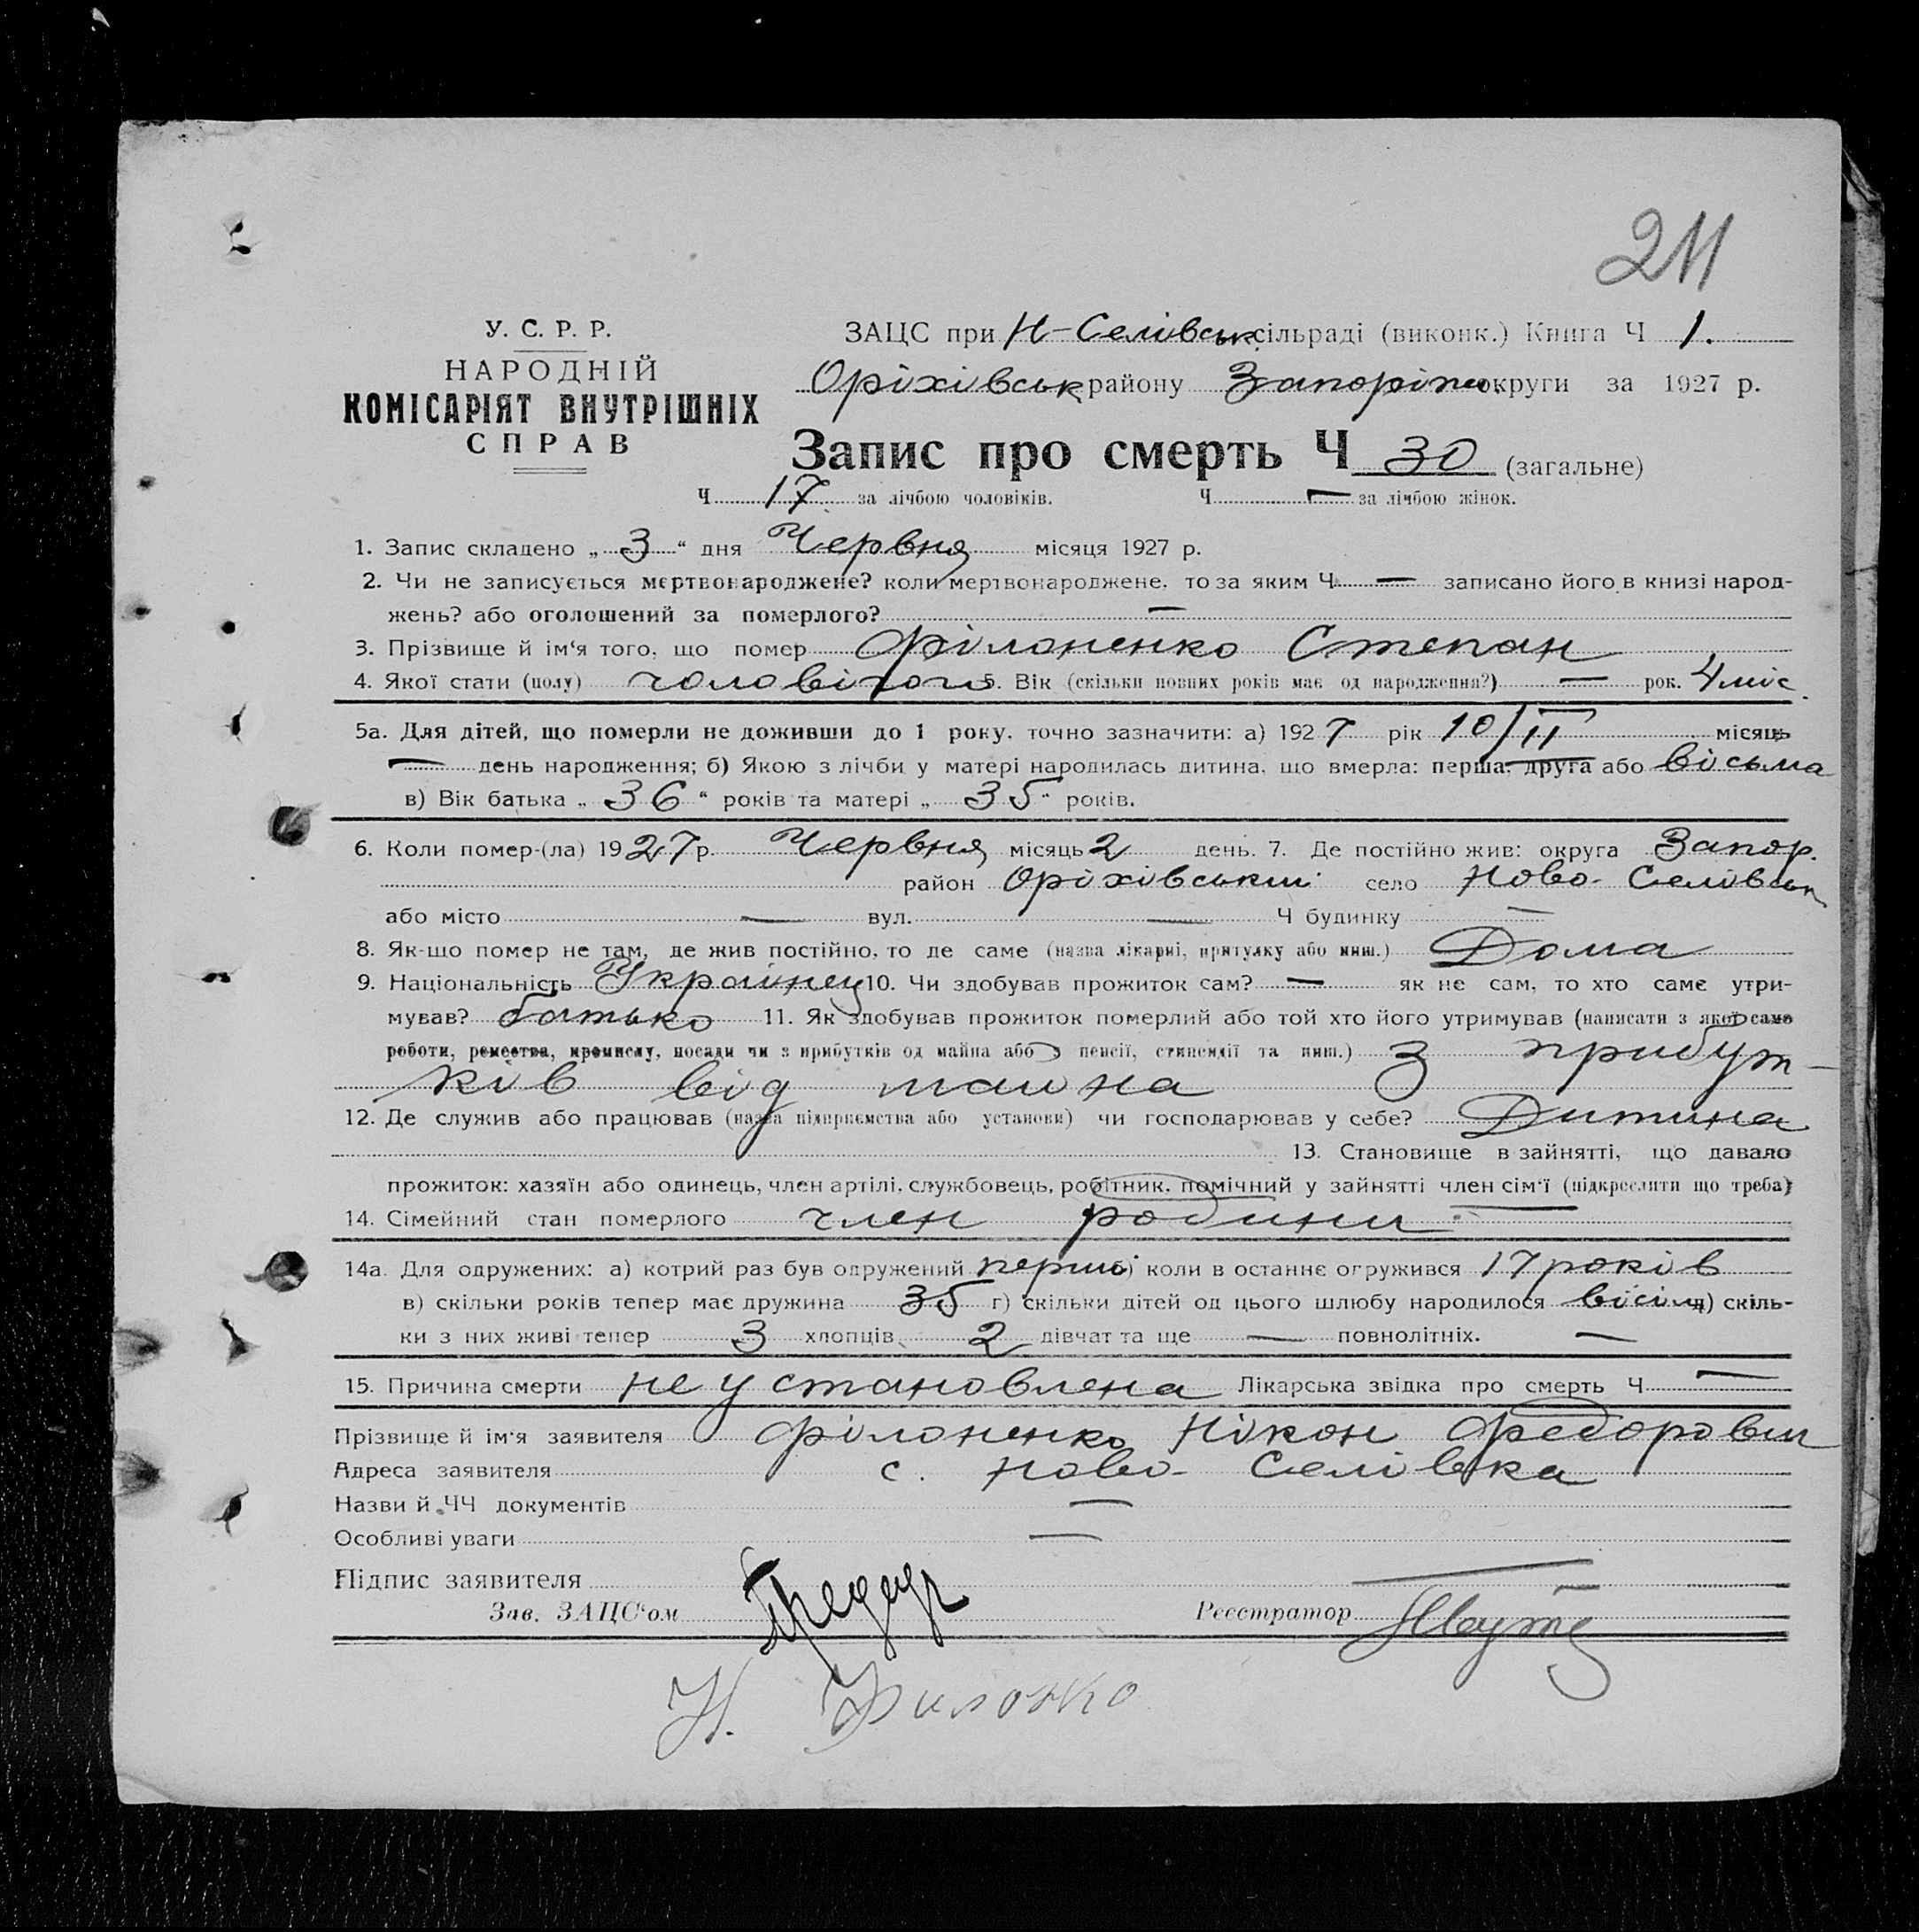 211
У. С. Р. Р.
НАРОДНІЙ
КОМІСАРІЯТ ВНУТРІШНІХ
СПРАВ
ЗАЦС при Н-Селівськ. сільраді (виконк.) Книга Ч 1.
Оріхівськ району Запоріжж округи за 1927 р.
Запис про смерть Ч 30 (загальне)
Ч 17 за лічбою чоловіків. Ч — за лічбою жінок.
1. Запис складено „ 3 “ дня Червня місяця 1927 р.
2. Чи не записується мертвонароджене? коли мертвонароджене, то за яким Ч — записано його в книзі народ-
жень? або оголошений за померлого? —
3. Прізвище й ім'я того, що помер Філоненко Степан
4. Якої стати (полу) чоловічого 5. Вік (скільки повних років має од народження?) — рок. 4 міс.
5а. Для дітей, що померли не доживши до 1 року, точно зазначити: а) 1927 рік 10/II місяць
— день народження; б) Якою з лічби у матері народилась дитина, що вмерла: перша, друга або вісьма
в) Вік батька „ 36 “ років та матері „ 35 “ років.
6. Коли помер-(ла) 1927 р. Червня місяць 2 день. 7. Де постійно жив: округа Запор.
район Оріхівський село Ново-Селівськ
або місто — вул. — Ч будинку —
8. Як-що помер не там, де жив постійно, то де саме (назва лікарні, притулку або инш.) Дома
9. Національність Українец 10. Чи здобував прожиток сам? — як не сам, то хто саме утри-
мував? батько 11. Як здобував прожиток померлий або той хто його утримував (написати з якої саме
роботи, ремества, промислу, посади чи з прибутків од майна або з пенсії, стипендії та инш.) З прибут-
ків від майна
12. Де служив або працював (назва підприємства або установи) чи господарював у себе? Дитина
13. Становище в зайнятті, що давало
прожиток: хазяїн або одинець, член артілі, службовець, робітник, помічний у зайнятті член сім'ї (підкреслити що треба)
14. Сімейний стан померлого член родини
14а. Для одружених: а) котрий раз був одружений перший б) коли в останнє огружився 17 років
в) скільки років тепер має дружина 35 г) скільки дітей од цього шлюбу народилося вісім д) скіль-
ки з них живі тепер 3 хлопців 2 дівчат та ще — повнолітніх. —
15. Причина смерти не установлена Лікарська звідка про смерть Ч —
Прізвище й ім'я заявителя Філоненко Нікон Федорович
Адреса заявителя с. Ново-Селівка
Назви й ЧЧ документів —
Особливі уваги —
Підпис заявителя
Зав. ЗАЦС'ом Реєстратор
Н. Филонко